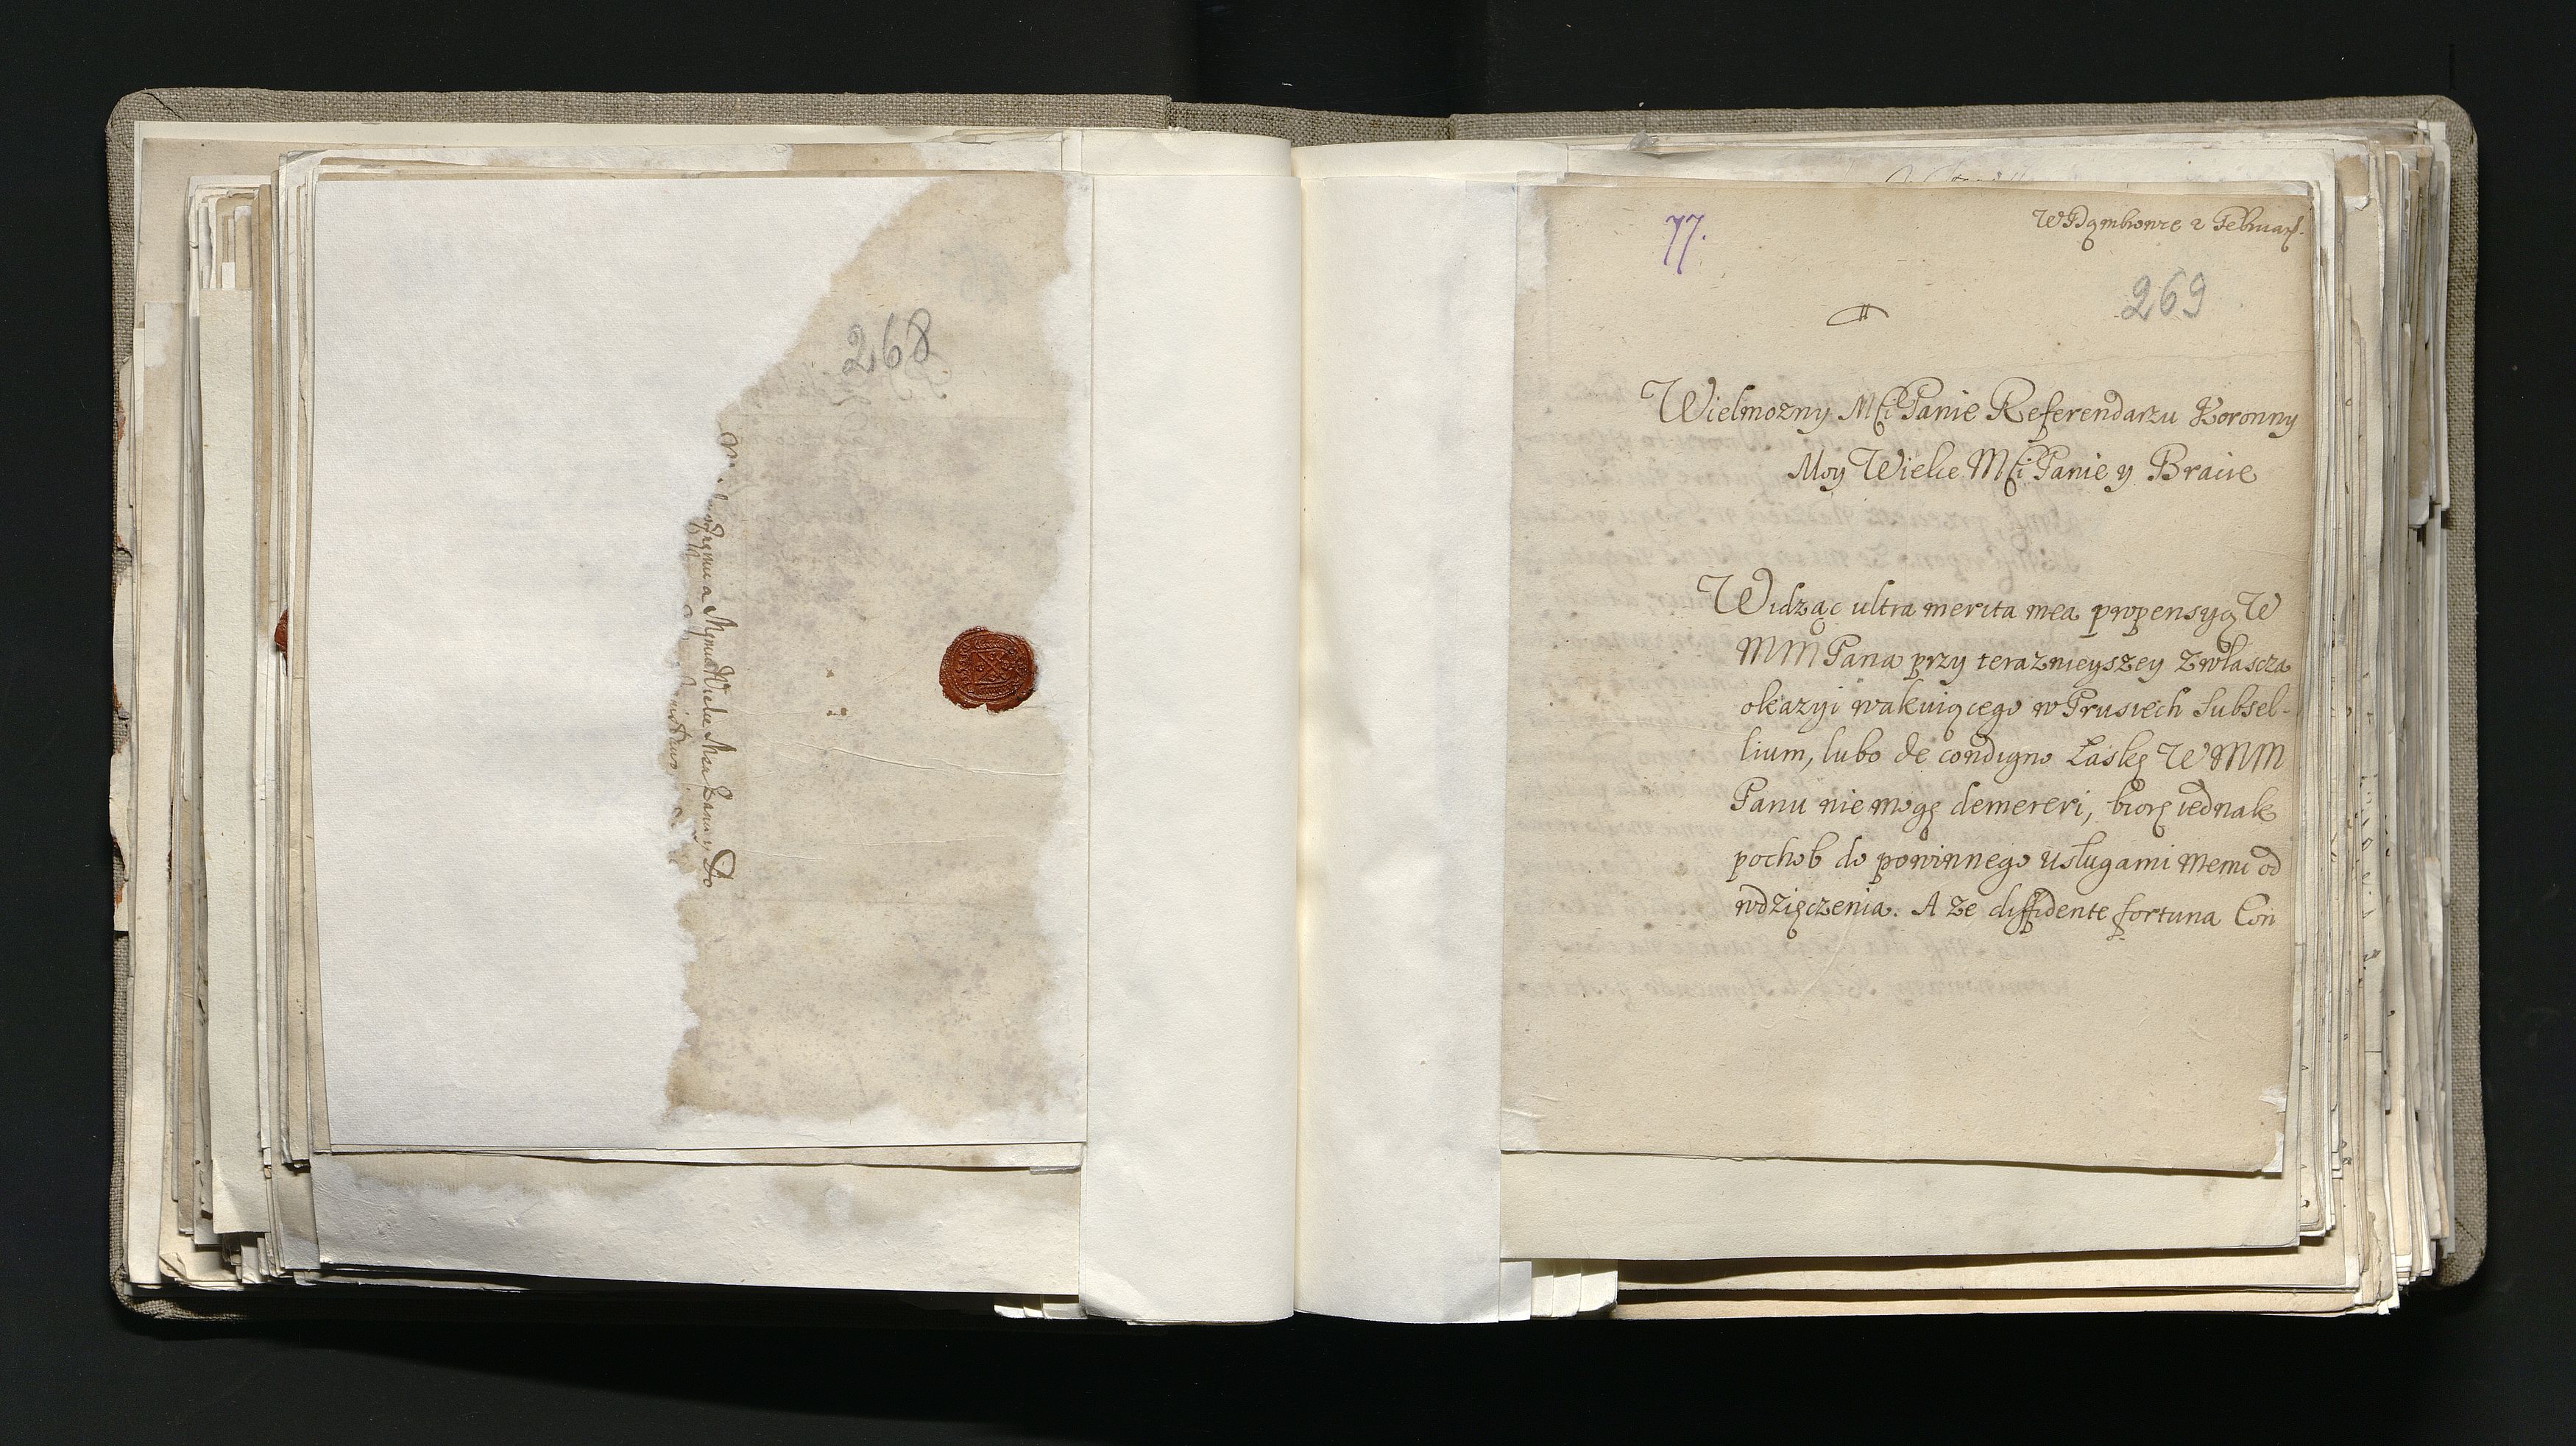 268
Memu Wielce Memu Panu y Do
77.
W Dąmbowce 2 Februarÿ.
269
Wielmozny Mſci Panie Referendarzu Koronny
Moy Wielce Mſci Panie y Bracie
Widząc ultra merita mea propensyą W
MM Pana przy teraznieyszey zwłascza
okazyi wakuiącego w Prusiech subsel-
lium, lubo de condigno Łaskę W MM
Panu nie mogę demereri, biorę iednak
pochob do powinnego usługami memi od
wdzięczenia. A ze diffidente fortuna Con